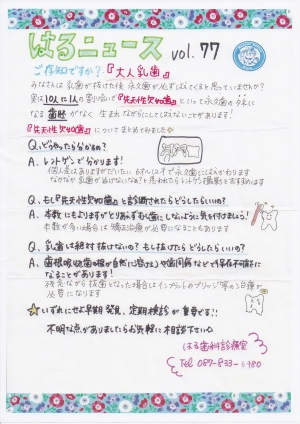 はるニュース vol.77
ご存知ですか？『大人乳歯』
みなさんは乳歯が抜けた後永久歯が必ずはえてくると思っていませんか？
実は10人に1人の割合いで『先天性欠如歯』といって永久歯の
なる歯胚がなく生まれながらにしてはえないことがあります！
『先天性欠如歯』についてまとめてみました
Q、どうやったら分かるの？
A、レントゲンで分かります！
個人差はありますがだいたい
なかなか乳歯がぬけないな？と思われたらレントゲン撮影をおすすめします
Q、もし『先天性欠如歯』と診断されたらどうしたらいいの？
A、本数にもよりますがとりあえずむし歯にしないように気を付けましょう！
本数が多い場合は矯正治療が必要になることもあります
Q、乳歯は絶対抜けないの？もし抜けたらどうしたらいいの？
A、歯根吸収(歯の根が自然に溶ける)や歯周病などで保存不可能に
なることがあります！
残念ながら抜歯となった場合はインプラントやブリッジ等の治療が
必要になります
☆いずれにせよ早期発見、定期検診が重要です!!
不明な点がありましたらお気軽に相談下さい
はる歯科診療室
Tel 087-833-6480